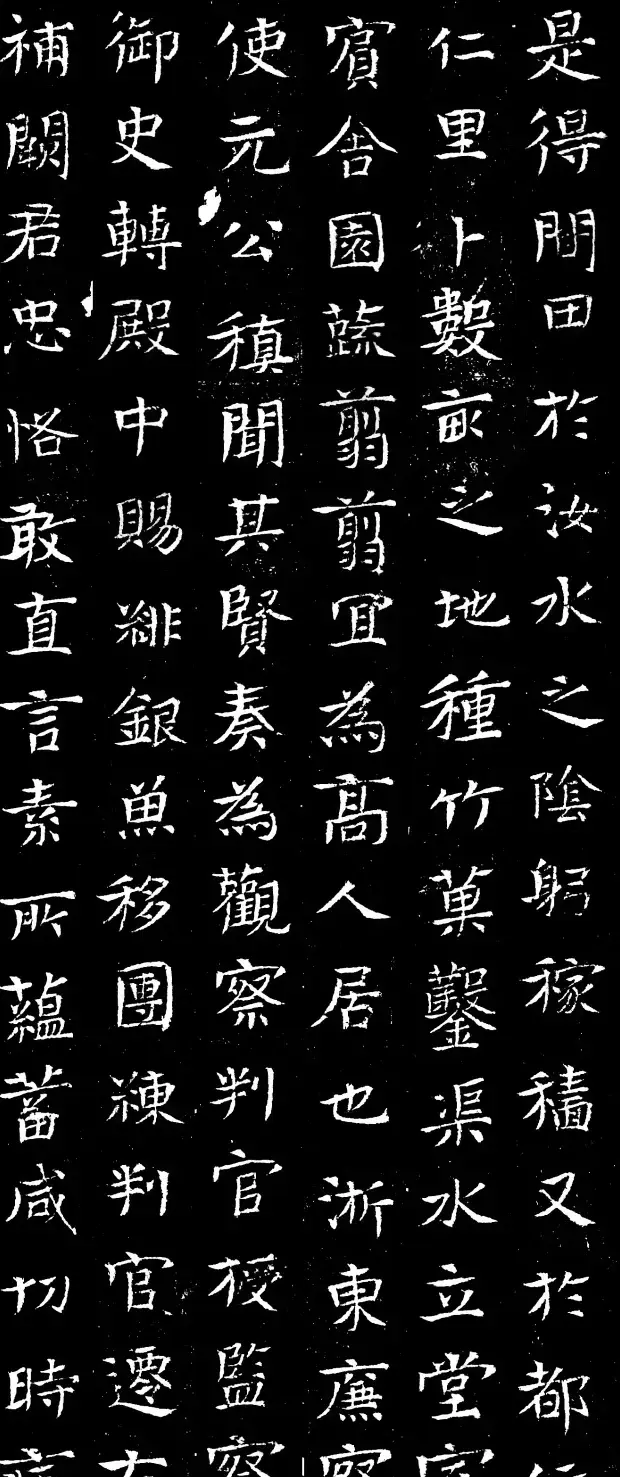 是得閒田於汝水之陰躬稼穡又於都
仁里卜數畝之地種竹菓鑿渠水立堂室
賓舍園蔬翦翦宜為高人居也浙東廉察
使元公稹聞其賢奏為觀察判官授監察
御史轉殿中賜緋銀魚移團練判官遷右
補闕君忠恪敢直言素所蘊蓄咸切時病